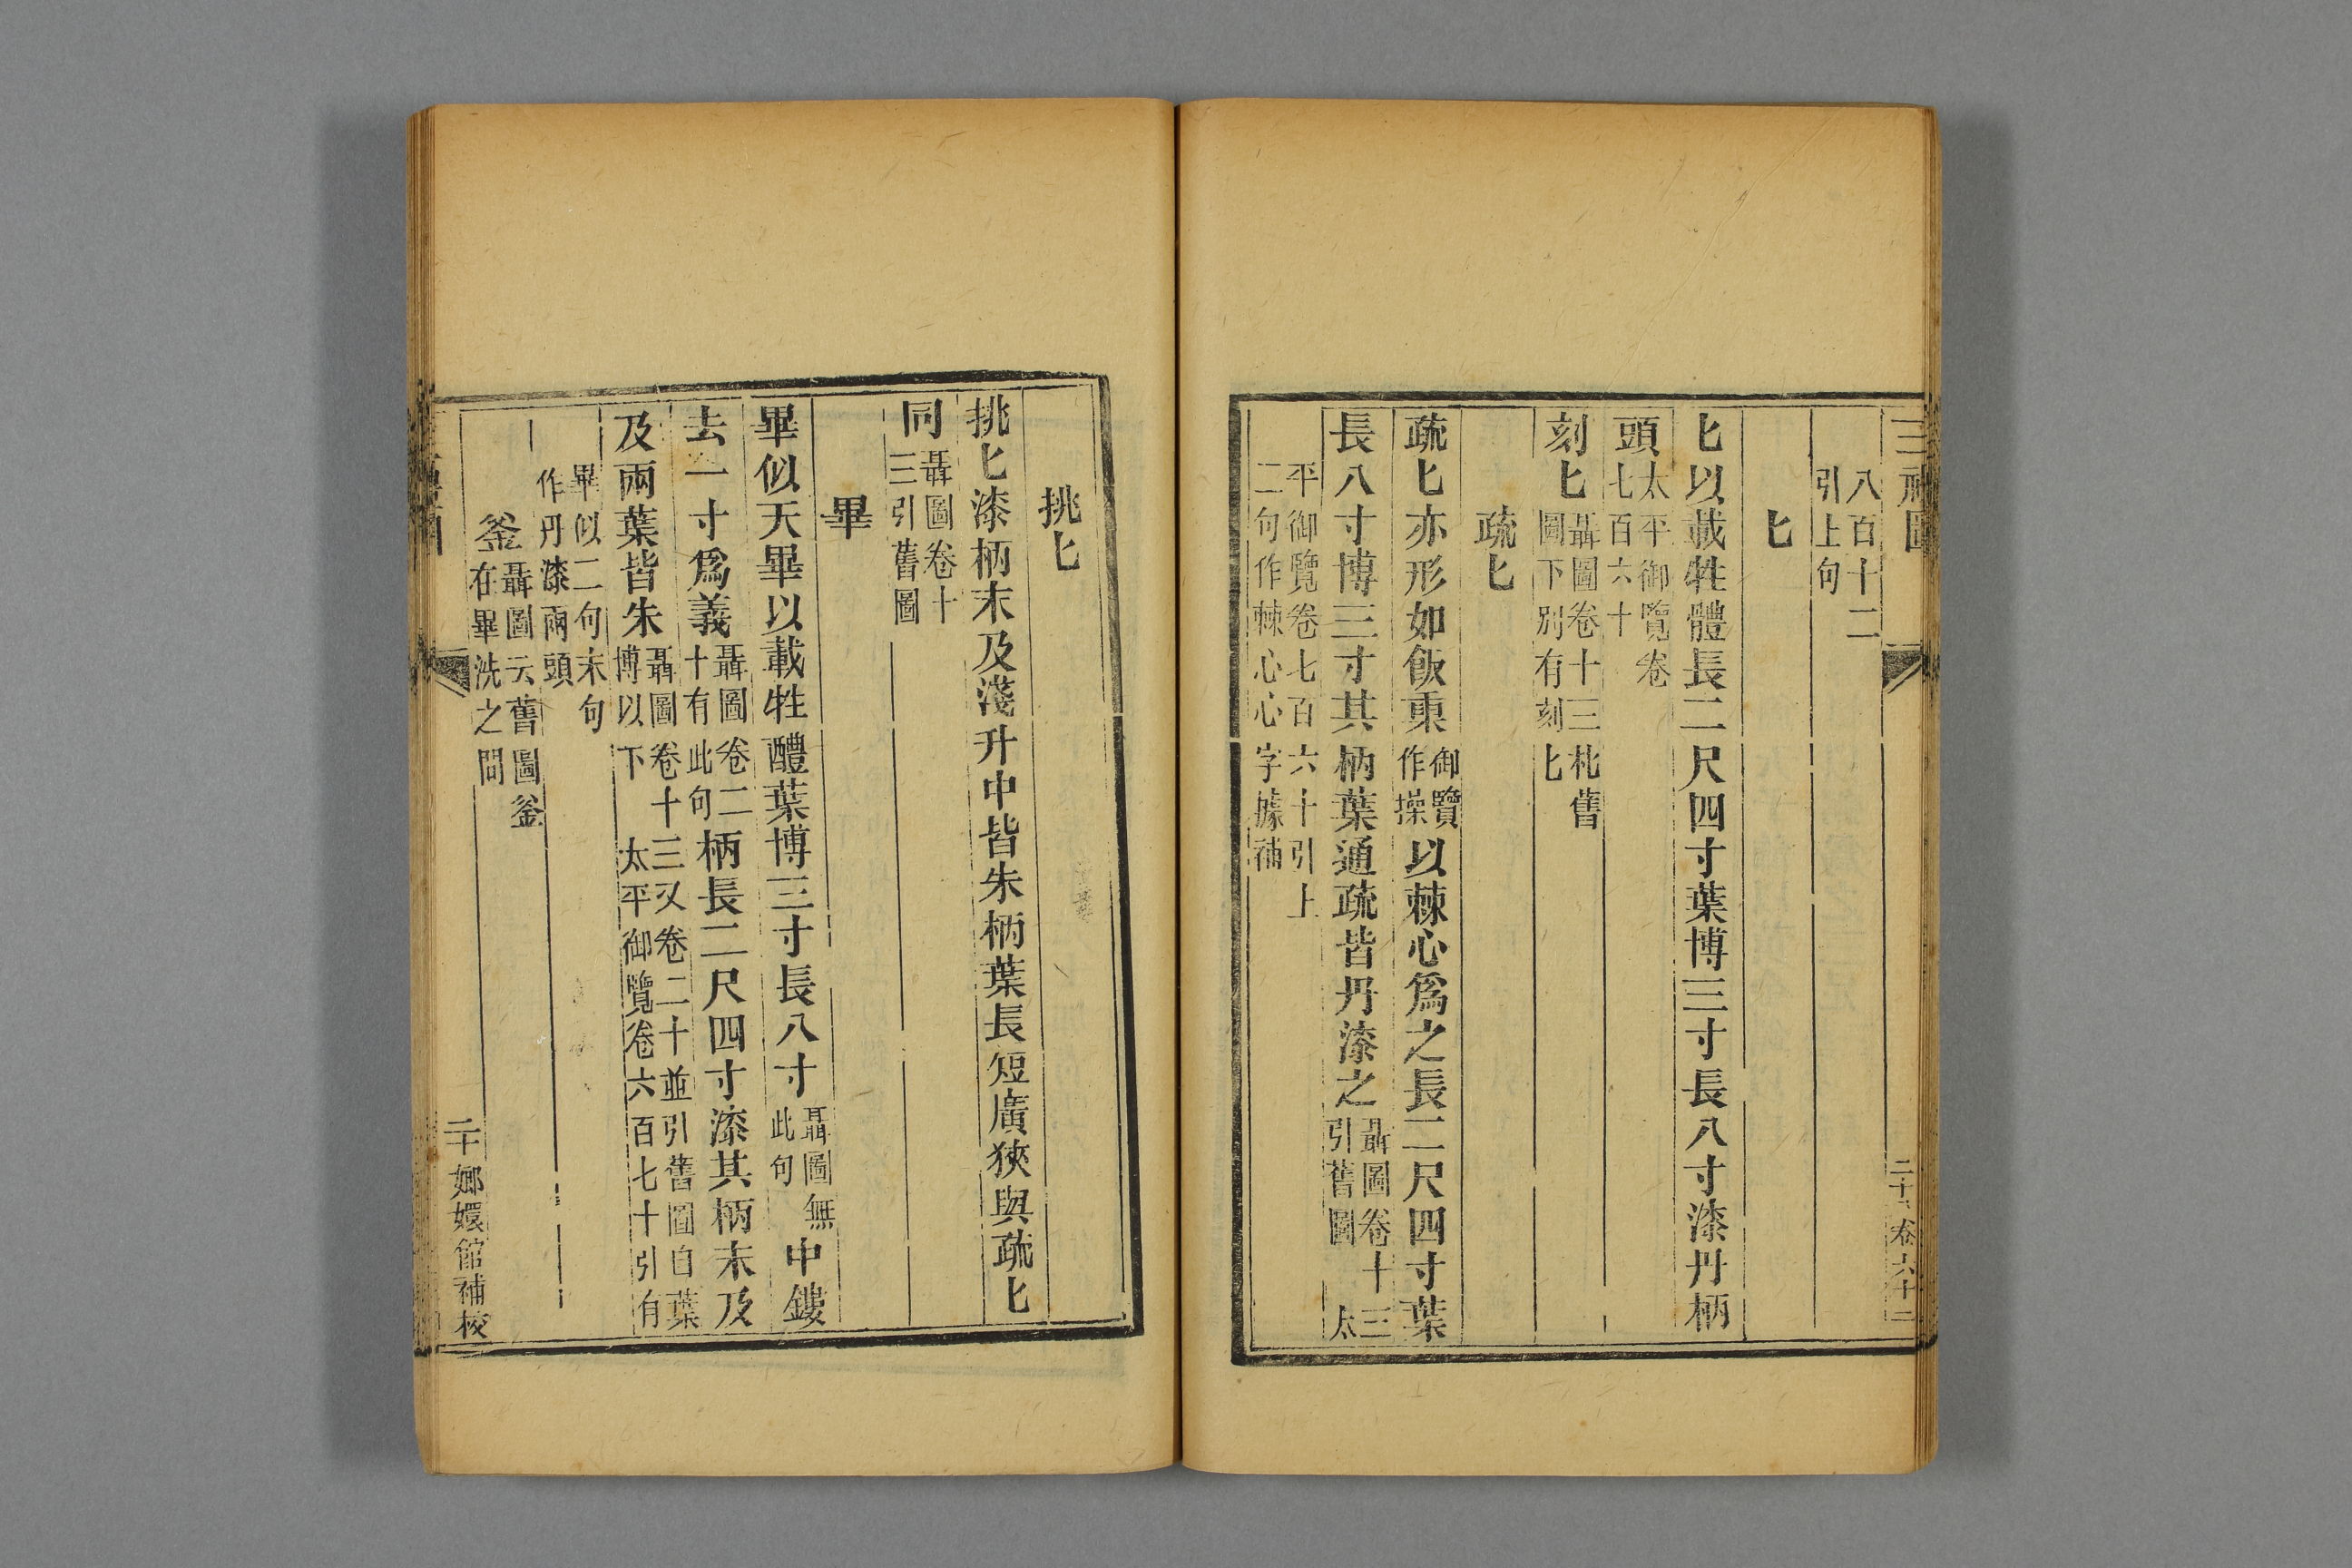 八百十二
引上句
匕
匕以載牲體長二尺四寸葉博三寸長八寸漆丹柄
頭太平御覽卷
七百六十
刻匕聶圖卷十三朼舊
圖下別有刻匕
疏匕
疏匕亦形如飯㮚御覽
作操以棘心爲之長二尺四寸葉
長八寸博三寸其柄葉通疏皆丹漆之聶圖卷十三
引舊圖 太
平御覽卷七百六十引上
二句作棘心心字據補
挑匕
挑匕漆柄末及淺升中皆朱柄葉長短廣狹與疏匕
同聶圖卷十
三引舊圖
畢
畢似天畢以載牲醴葉博三寸長八寸聶圖無
此句中鏤
去一寸爲義聶圖卷二
十有此句柄長二尺四寸漆其柄末及
及兩葉皆朱聶圖卷十三又卷二十並引舊圖自葉
博以下 太平御覽卷六百七十引有
畢似二句末句
作丹漆兩頭
釜聶圖云舊圖釜
在畢洗之間
二十
嫏嬛館補校